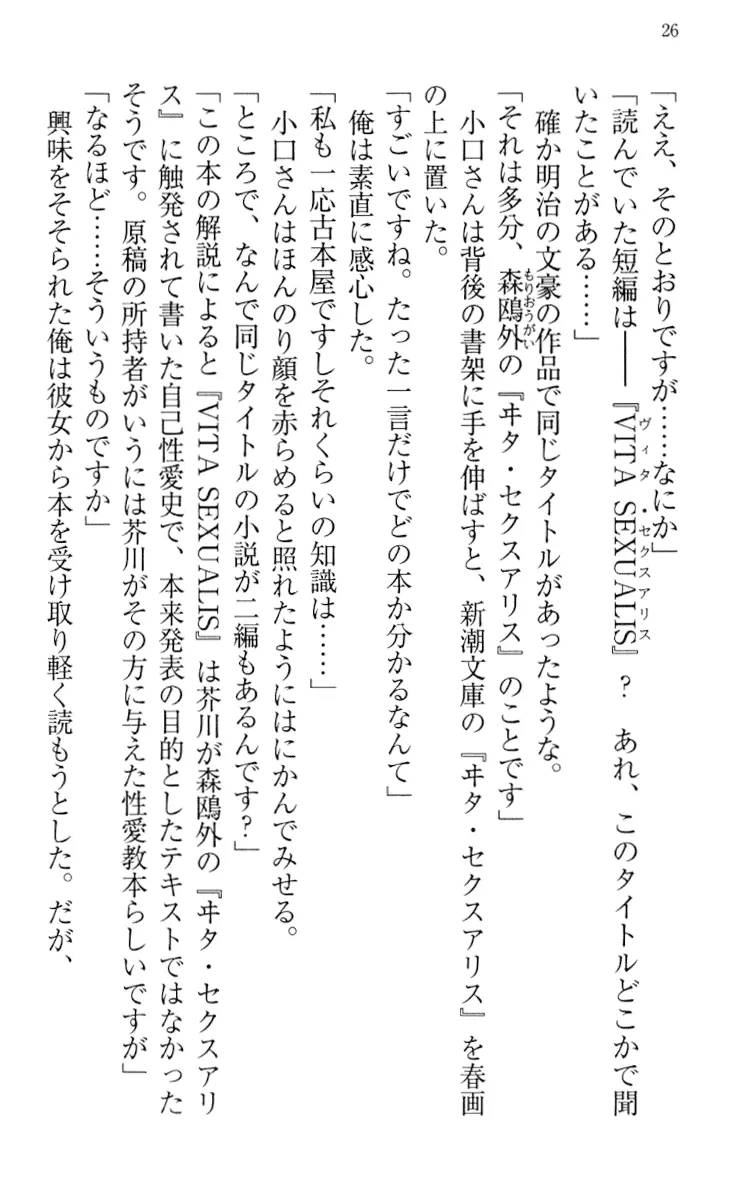 26
「ええ、そのとおりですが……なにか」
「読んでいた短編は――『VITA SEXUALIS』？　あれ、このタイトルどこかで聞
いたことがある……」
確か明治の文豪の作品で同じタイトルがあったような。
「それは多分、森鷗外の『ヰタ・セクスアリス』のことです」
小口さんは背後の書架に手を伸ばすと、新潮文庫の『ヰタ・セクスアリス』を春画
の上に置いた。
「すごいですね。たった一言だけでどの本か分かるなんて」
俺は素直に感心した。
「私も一応古本屋ですしそれくらいの知識は……」
小口さんはほんのり顔を赤らめると照れたようにはにかんでみせる。
「ところで、なんで同じタイトルの小説が二編もあるんです？」
「この本の解説によると『VITA SEXUALIS』は芥川が森鷗外の『ヰタ・セクスアリ
ス』に触発されて書いた自己性愛史で、本来発表の目的としたテキストではなかった
そうです。原稿の所持者がいうには芥川がその方に与えた性愛教本らしいですが」
「なるほど……そういうものですか」
興味をそそられた俺は彼女から本を受け取り軽く読もうとした。だが、